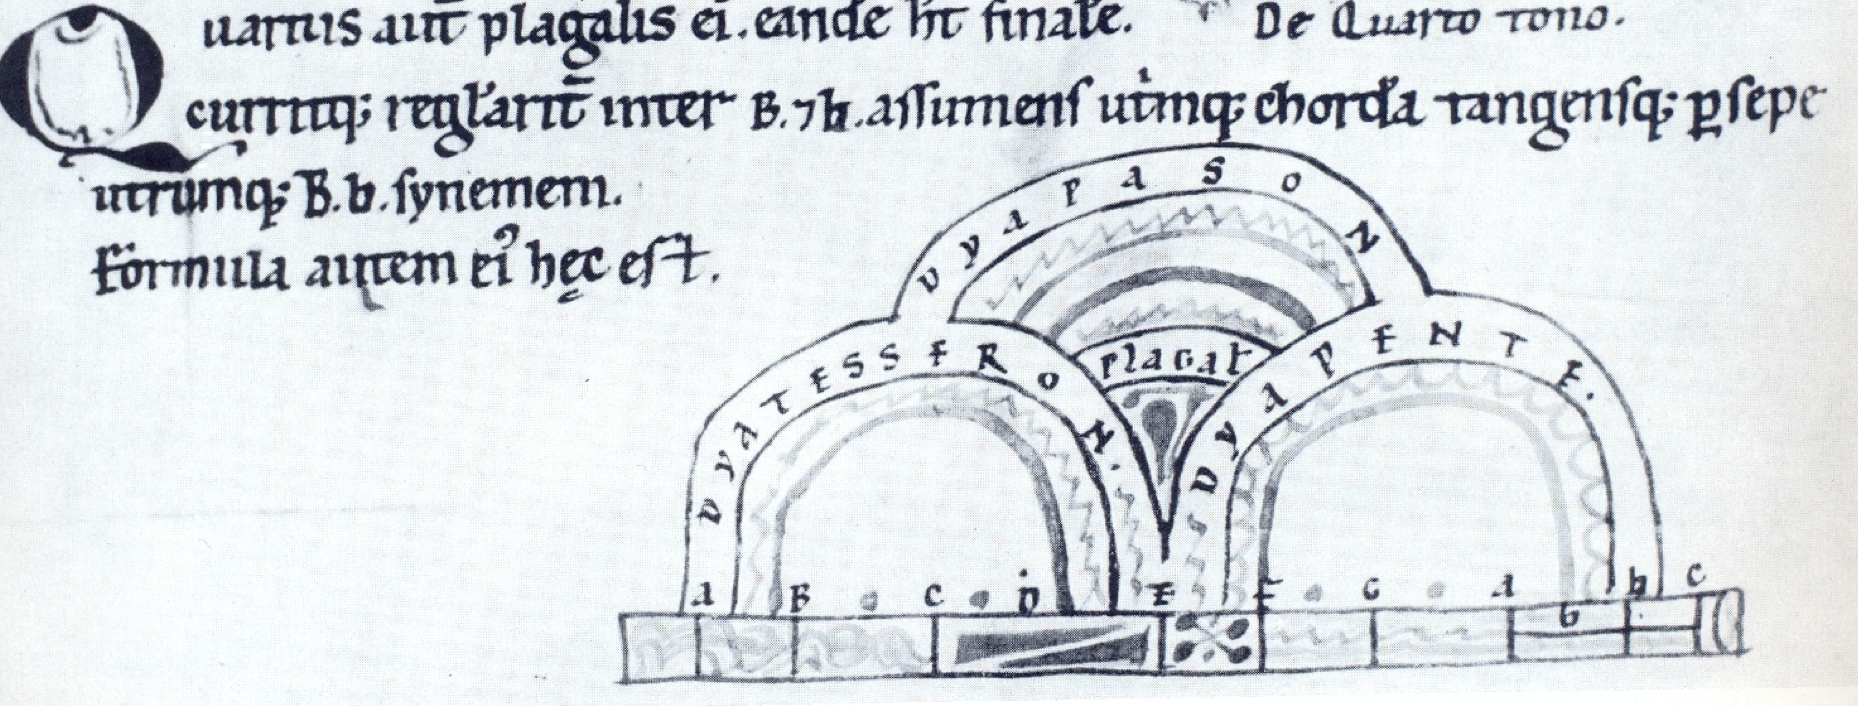 Quartus aut̄ plagalis ei. eandē ht̄ finalē. De Quarto tono.
curritq; regl'arit̄ inter B. ⁊ h. assumens utrinq; chordā tangensq; ꝑsepe
utrumq; B. b. synemem.
Formula autem ei᾽ hęc est.
DYAPASON
DYATESSERON. plagal DYAPENTE.
A B C D E F G a b h c